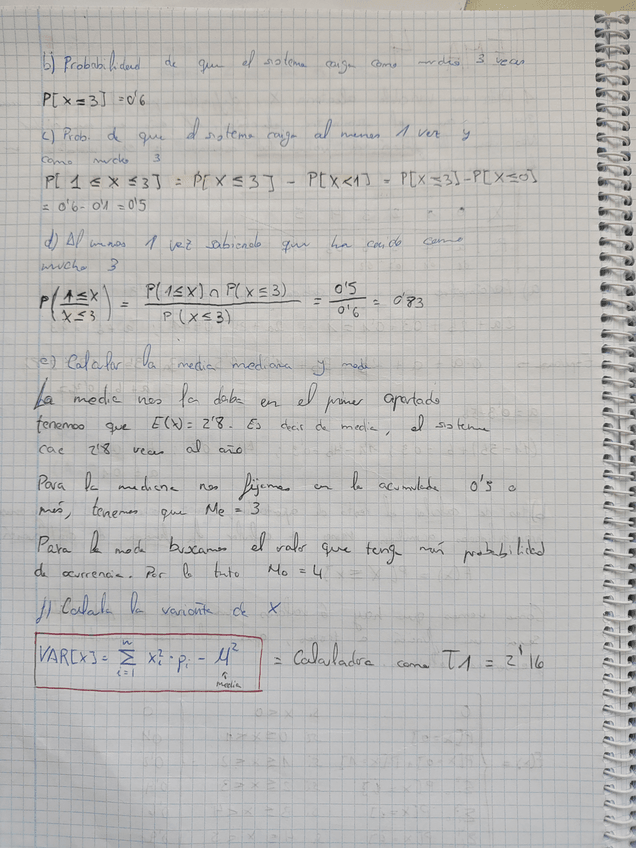 b) Probabilidad de que el sistema caiga como mucho 3 veces
P[X ≤ 3] = 0'6
c) Prob. de que el sistema caiga al menos 1 vez y
como mucho 3
P[1 ≤ X ≤ 3] = P[X ≤ 3] - P[X<1] = P[X ≤ 3] - P[X ≤ 0]
= 0'6 - 0'1 = 0'5
d) Al menos 1 vez sabiendo que ha caido como
mucho 3
P(1 ≤ X / X ≤ 3) = P(1 ≤ X) ∩ P(X ≤ 3) / P(X ≤ 3) = 0'5 / 0'6 = 0'83
e) Calcular la media mediana y moda
La media nos la daba en el primer apartado
tenemos que E(X) = 2'8. Es decir de media, el sistema
cae 2'8 veces al año
Para la mediana nos fijamos en la acumulada 0'5 o
más, tenemos que Me = 3
Para la moda buscamos el valor que tenga más probabilidad
de ocurrencia. Por lo tanto Mo = 4
f) Calcula la varianza de X
VAR[X] = Σ i=1 n xi² · pi - μ² = Calculadora como T1 = 2'16
media